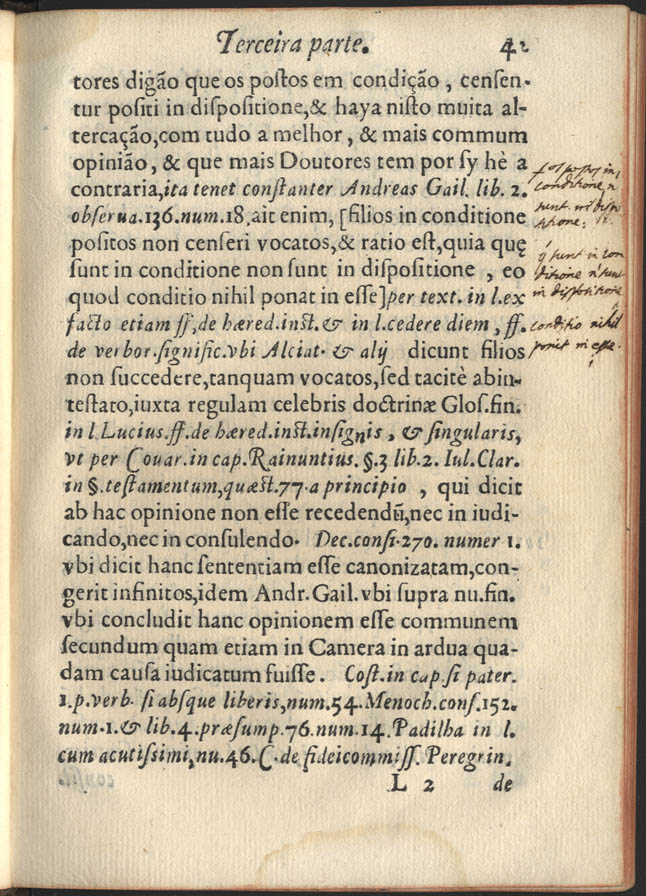 Terceira parte. 42
tores digão que os postos em condição, censen-
tur positi in dispositione,& haya nisto muita al-
tercação,com tudo a melhor, & mais commum
opinião, & que mais Doutores tem por sy hè a
contraria,ita tenet constanter Andreas Gail. lib. 2.
obserua.136.num.18.ait enim, [filios in conditione
positos non censeri vocatos,& ratio est,quia quę
sunt in conditione non sunt in dispositione , eo
quod conditio nihil ponat in esse]per text. in l.ex
facto etiam ff,de hæred.inst.& in l.cedere diem, ff.
de verbor.signific.vbi Alciat. & alij dicunt filios
non succedere,tanquam vocatos,sed tacitè abin-
testato,iuxta regulam celebris doctrinæ Glos.fin.
in l Lucius.ff.de hæred.inst.insignis, & singularis,
vt per Couar.in cap.Rainuntius.§.3 lib.2. Iul.Clar.
in §.testamentum,quæst.77.a principio , qui dicit
ab hac opinione non esse recedendũ,nec in iudi-
cando,nec in consulendo. Dec.consi.270. numer 1.
vbi dicit hanc sententiam esse canonizatam,con-
gerit infinitos,idem Andr.Gail.vbi supra nu.fin.
vbi concludit hanc opinionem esse communem
secundum quam etiam in Camera in ardua qua-
dam causa iudicatum fuisse. Cost.in cap.si pater.
1.p.verb. si absque liberis,num.54.Menoch.cons.152.
num.1.& lib.4.præsump.76.num.14.Padilha in l.
cum acutissimi,nu.46.C.de fideicommiss. Peregrin.
L 2 de
in
conditione n
sunt in disp
sitione.
q sunt in con
ditione n sunt
in dispositione
conditio nihil
ponit in esse.